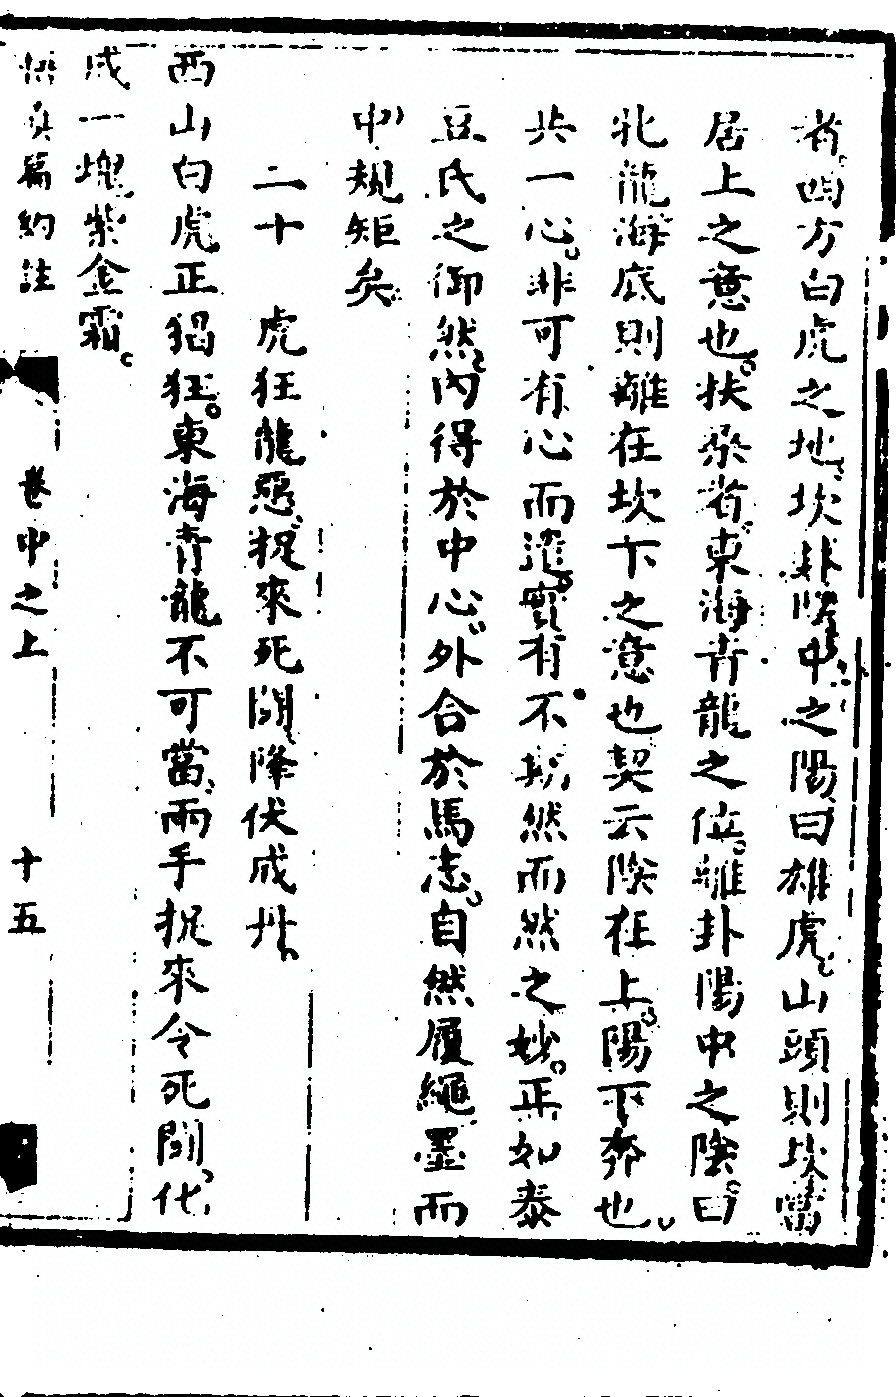 者西方白虎之地坎卦陰中之陽曰雄虎山頭則坎當
居上之意也扶桑者東海青龍之位離卦陽中之陰曰
北龍海底則離在坎下之意也契云陰在上陽下奔也
共一心非可有心而造實有不期然而然之妙正如泰
豆氏之御然內得於中心外合於馬志自然履繩墨而
中規矩矣
二十 虎狂龍惡捉來死鬬降伏成丹
西山白虎正猖狂東海青龍不可當兩手捉來令死鬬化
成一塊紫金霜
悟真篇約註 卷中之上 十五